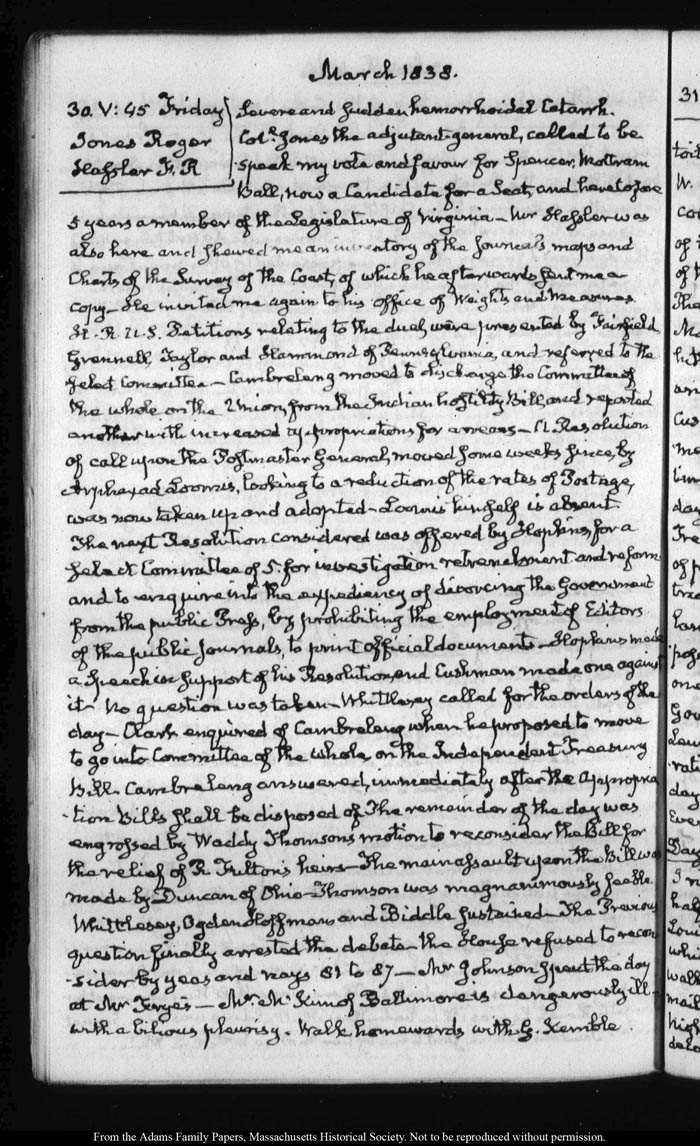 March 1838.
30. V: 45 Friday
Jones Roger
Hassler F. R
Severe and sudden hemorrhoidal Catarrh.
Colr. Jones the adjutant-general, called to be
speak my vote and favour for Spencer, Mottram
Ball, now a Candidate for a Seat, and heretofore
5 years a member of the Legislature of Virginia — Mr Hassler was
also here and shewed me an inventory of the Journals maps and
Charts of the Survey of the Coast, of which he afterwards sent me a
copy — He invited me again to his office of Weights and Measures.
H. R. U.S. Petitions relating to the duel, were presented by Fairfield,
Grennell, Taylor and Hammond of Pennsylvania, and referred to the
Select Committee — Cambreleng moved to discharge the Committee of
the whole on the Union, from the Indian hostility Bill, and reported
another with increased appropriations for arrears — A Resolution
of call upon the Postmaster General, moved some weeks since, by
Arphaxad Loomis, looking to a reduction of the rates of Postage,
was now taken up and adopted — Loomis himself is absent
The next Resolution considered was offered by Hopkins, for a
Select Committee of 5. for investigation retrenchment and reform
and to enquire into the expediency of divorcing the Government
from the public Press, by prohibiting the employment of Editors
of the public Journals, to print official documents — Hopkins made
a Speech in support of his Resolution, and Cushman made one against
it. No question was taken — Whittlesey called for the orders of the
day — Clark enquired of Cambreleng when he proposed to move
to go into Committee of the whole, on the Independent Treasury
Bill. Cambreleng answered, immediately after the Appropria
-tion Bills shall be disposed of The remainder of the day was
engrossed by Waddy Thomson's motion to reconsider the Bill for
the relief of R. Fulton's heirs — The main assault upon the Bill was
made by Duncan of Ohio — Thomson was magnanimously feeble.
Whittlesey, Ogden Hoffman and Biddle sustained — The Previous
question finally arrested the debate — the House refused to recon
-sider by yeas and nays 81 to 87 — Mr Johnson spent the day
at Mr Frye's — Mr. McKim of Baltimore is dangerously ill
with a bilious pleurisy. Walk homewards with G. Kemble.
31
From the Adams Family Papers, Massachusetts Historical Society. Not to be reproduced without permission.